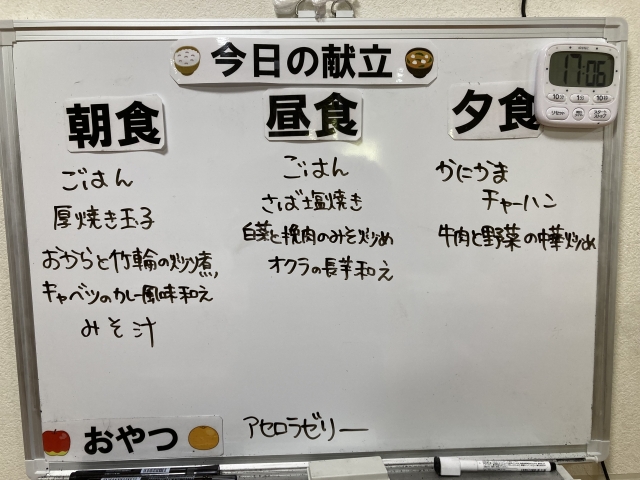 今日の献立
朝食
ごはん
厚焼き玉子
おからと竹輪の炒り煮
キャベツのカレー風味和え
みそ汁
昼食
ごはん
さば塩焼き
白菜と挽肉のみそ炒め
オクラの長芋和え
夕食
かにかま
チャーハン
牛肉と野菜の中華炒め
おやつ
アセロラゼリー
17:06
10分
1分
10秒
リセット